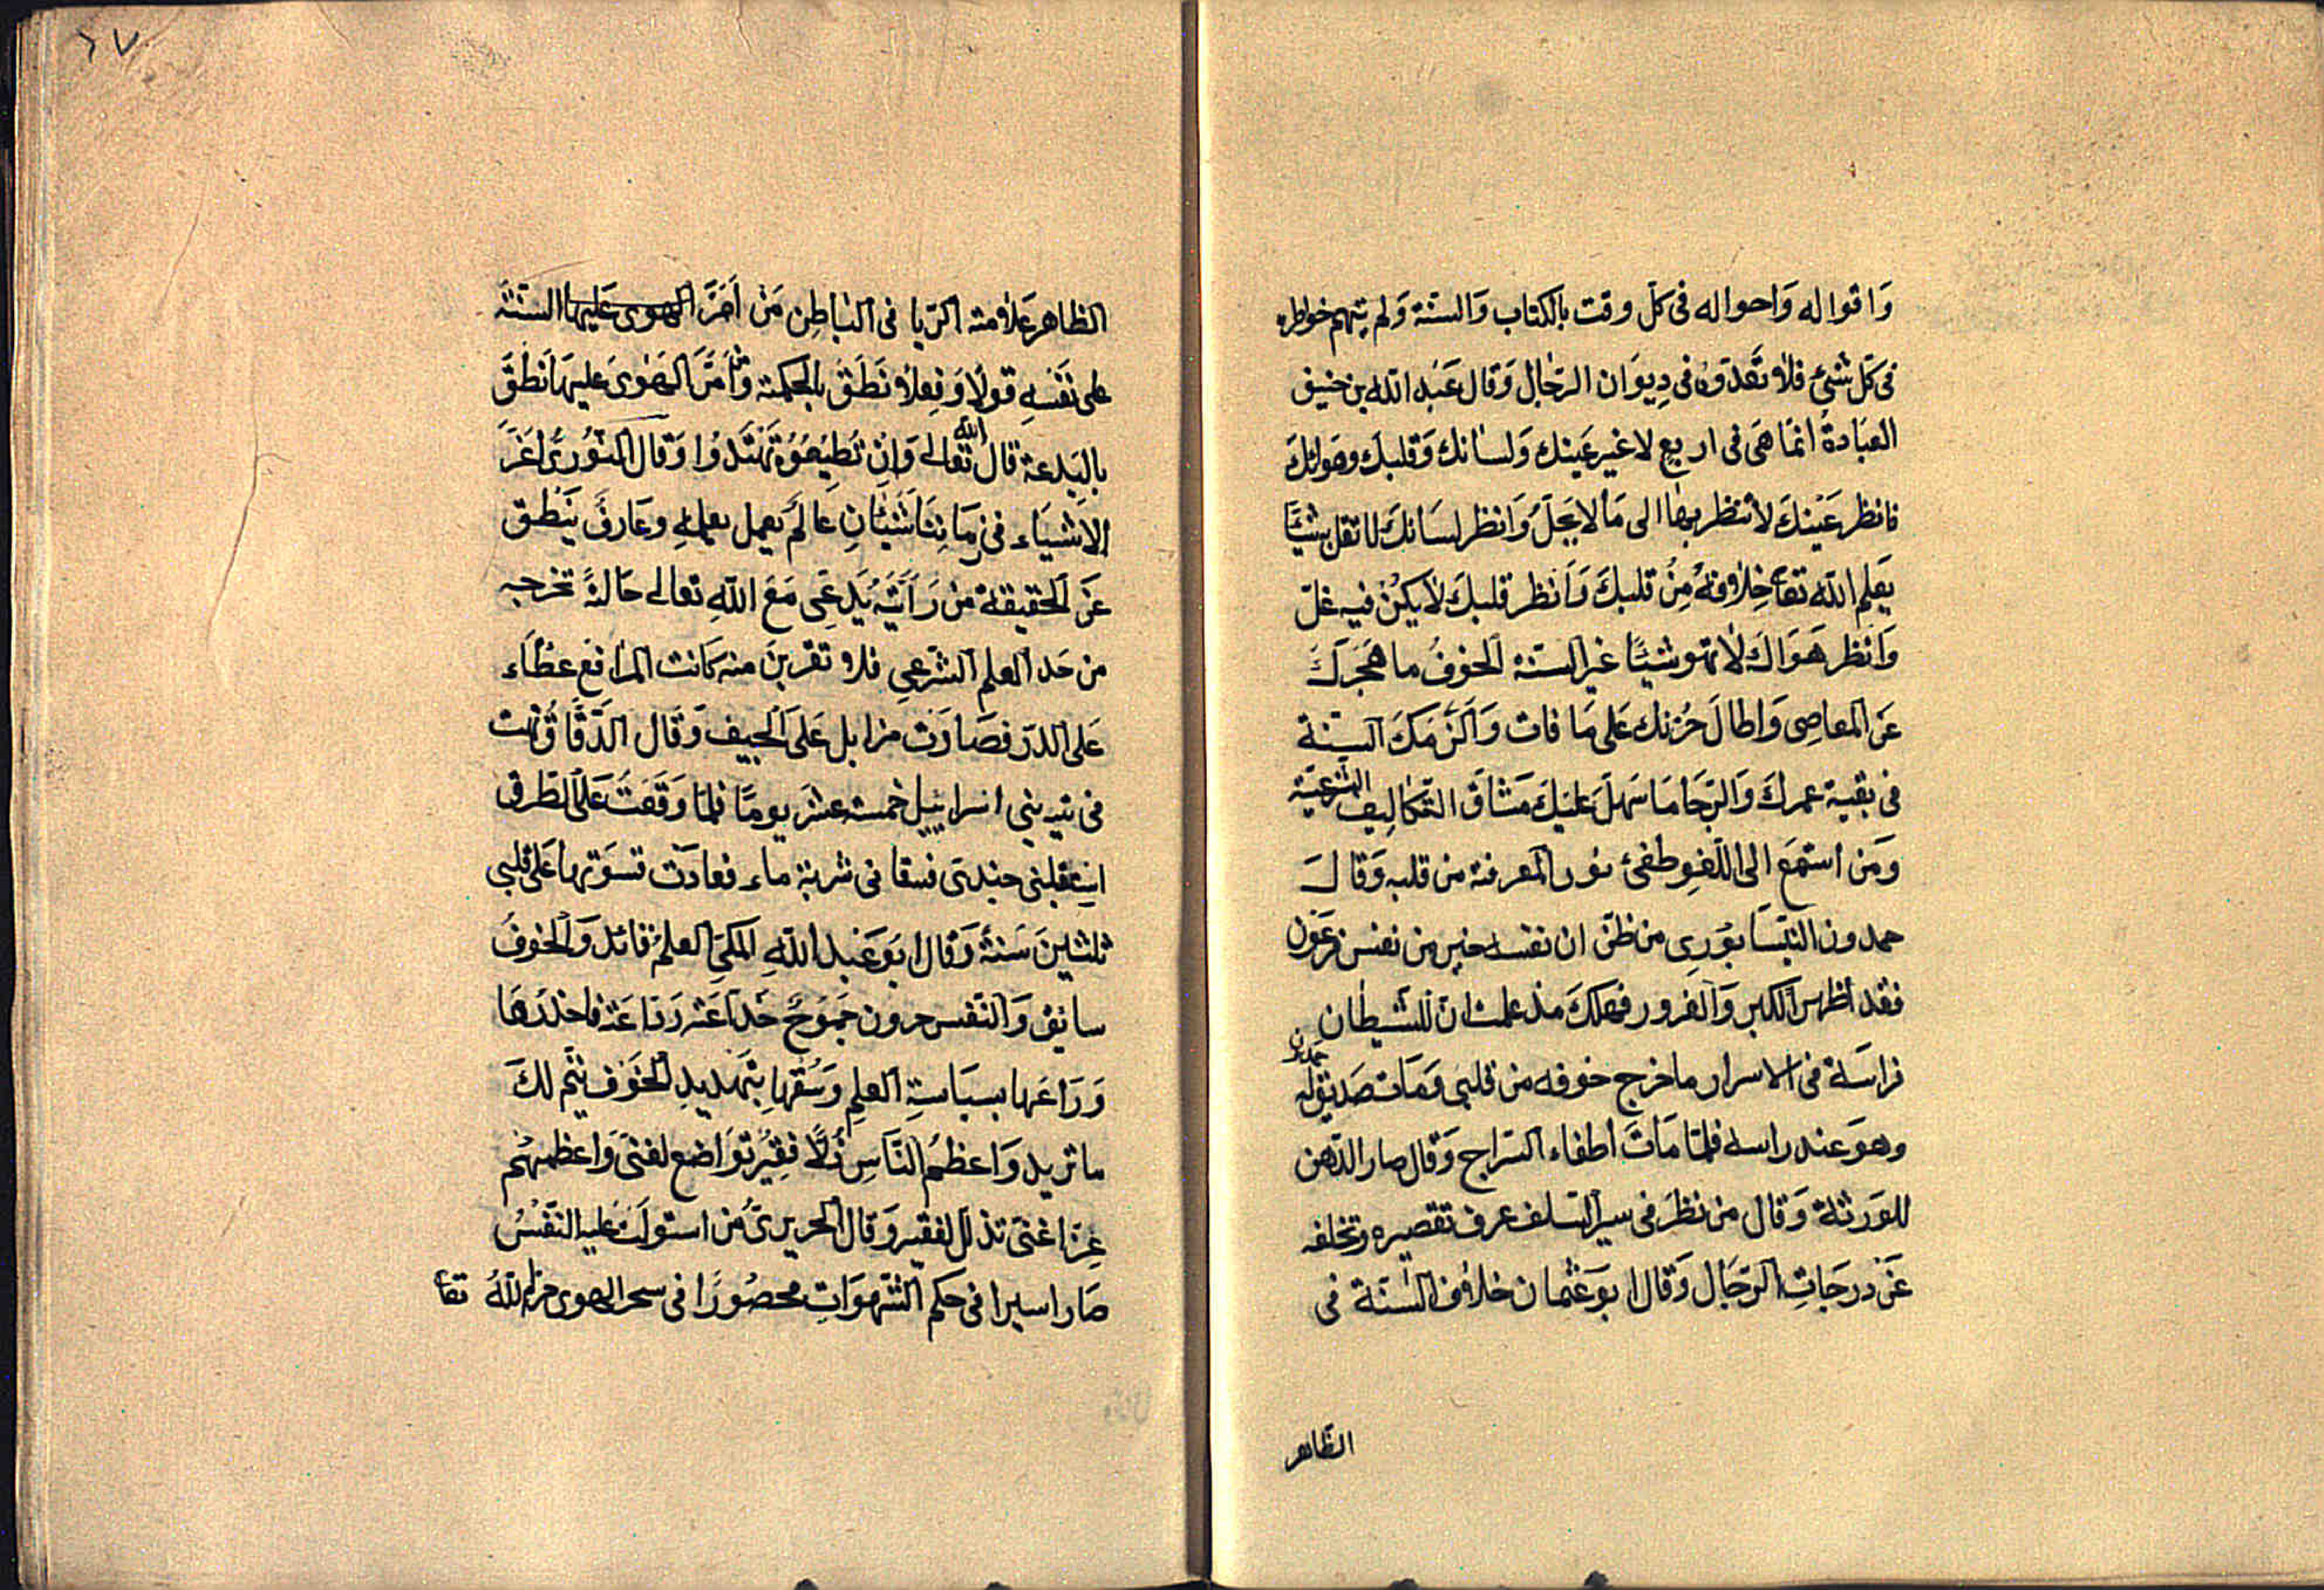 وَاقواله وَاحواله فى كلّ وقت بالكتاب وَالسنّة وَلم يتهم خواطره
فى كل شئ فلا تَعدّوهُ فى دِيوَان الرجَال وَقال عَبْد الله بن خفيف
العبَادةُ انمَا هىَ فى اربع لا غير عَينك وَلسانك وَقلبكَ وهَوائكَ
فانظر عَينكَ لا تنظر بهَا الى مَا لا يَحِلّ وَانظر لسَانكَ لا تقل شيئًا
يَعلم الله تعا خِلافهُ مِنْ قلبكَ وَانظر قلبكَ لا يكُن فيه غلّ
وَانظر هَوَاكَ لا تهو شيئًا غير السنّة الخوفُ ما هَجَركَ
عَن المعاصِى وَاطالَ حُزنك عَلى مَا فات وَالزمَكَ السنّة
فى بقيّة عمركَ وَالرّجَا مَا سَهلَ عليكَ مَشاقّ التكالِيف الشرعيّة
وَمَن استمعَ الى اللّغوِ طفئ نور المعرفة من قلبه وَقالَ
حمدون النيسَابورِى من ظنّ ان نفسه خير من نفس فرعَون
فقد اظهر الكبر وَالغرور فهلكَ مذ علمت ان للشيطان
فراسَة فى الاسرار ما خرج خوفه من قلبى وَمَات صَديق له حمدون
وهوَ عند راسه فلمّا مَاتَ اطفاء السراج وَقال صار الدّهن
للوَرثة وَقال من نظرَ فى سير السّلف عرف تقصيره وتخلفه
عَن درجَاتِ الرّجَال وَقال ابوَ عثمان خلاف السّنّة فى
الظاهر
٦٧
الظاهر عَلامة الرّيا فى البَاطِن مَن اَمَرَّ الهوى عَليها السنّةَ
على نَفسِهِ قولًا وَفِعلًا نَطَقَ بالحِكمة وَمَن اَمَرَّ الهَوىَ عليهَا نَطَقَ
بالبِدعة قال الله تعالى وَاِن تُطِيعُوهُ تَهتَدُوا وَقال النّورِىّ اعَزّ
الاشيَاء فى زمَانِنَا شَيئَانِ عَالمٌ يعمل بعِلمِهِ وعَارفٌ يَنطق
عَنْ الحَقيقة من رَأَيتَهُ يَدّعِى مَعَ الله تعالى حَالةً تخرجه
من حَدّ العلم الشرّعى فلا تقربنّ منه كَانت المرَاقع غطاء
عَلى الدرّ فصَارَت مزابل عَلى الجيف وَقال الدّقّاق تهت
فى تيه بنى اسرائيل خمسة عشَر يومًا فلمّا وَقَفتُ عَلى الطّرق
استقبلنى جندى فسقانى شربة ماء فعادت قسوَتها عَلى قلبى
ثلثينَ سَنة وَقال ابوَ عَبد الله المكىّ العلمُ قائد وَالخوفُ
سائقٌ وَالنّفس حرون جَموُحٌ خَدّاعَة رَوّاغَة فاحْذرهَا
وَرَاعَها بسيَاسةِ العلمِ وَسُقهَا بتَهديدِ الخَوف يتمّ لكَ
ما تريد وَاعظمُ النّاسِ ذُلًّا فقِيرٌ توَاضع لغنىّ وَاعظمهُم
عِزّا غنىّ تذلّل لفقير وَقال الجريرىّ من استولَتْ عليه النّفسُ
صَار اسيرا فى حكم الشّهوَاتِ محصُورًا فى سجن الهوى حرّم اللّهُ تعا